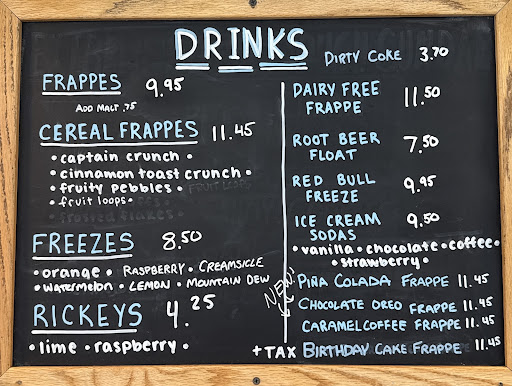 DRINKS
DIRTY COKE 3.70
FRAPPES 9.95
ADD MALT .75
CEREAL FRAPPES 11.45
• captain crunch •
• cinnamon toast crunch •
• fruity pebbles • FRUIT LOOPS
• fruit loops •
frosted flakes •
FREEZES 8.50
• orange • RASPBERRY • CREAMSICLE
• WATERMELON • LEMON • MOUNTAIN DEW
RICKEYS 4.25
• lime • raspberry •
DAIRY FREE
FRAPPE 11.50
ROOT BEER
FLOAT 7.50
RED BULL
FREEZE 9.95
ICE CREAM
SODAS 9.50
• vanilla • chocolate • coffee •
• strawberry •
NEW!
PIÑA COLADA FRAPPE 11.45
CHOCOLATE OREO FRAPPE 11.45
CARAMEL COFFEE FRAPPE 11.45
BIRTHDAY CAKE FRAPPE 11.45
+ TAX